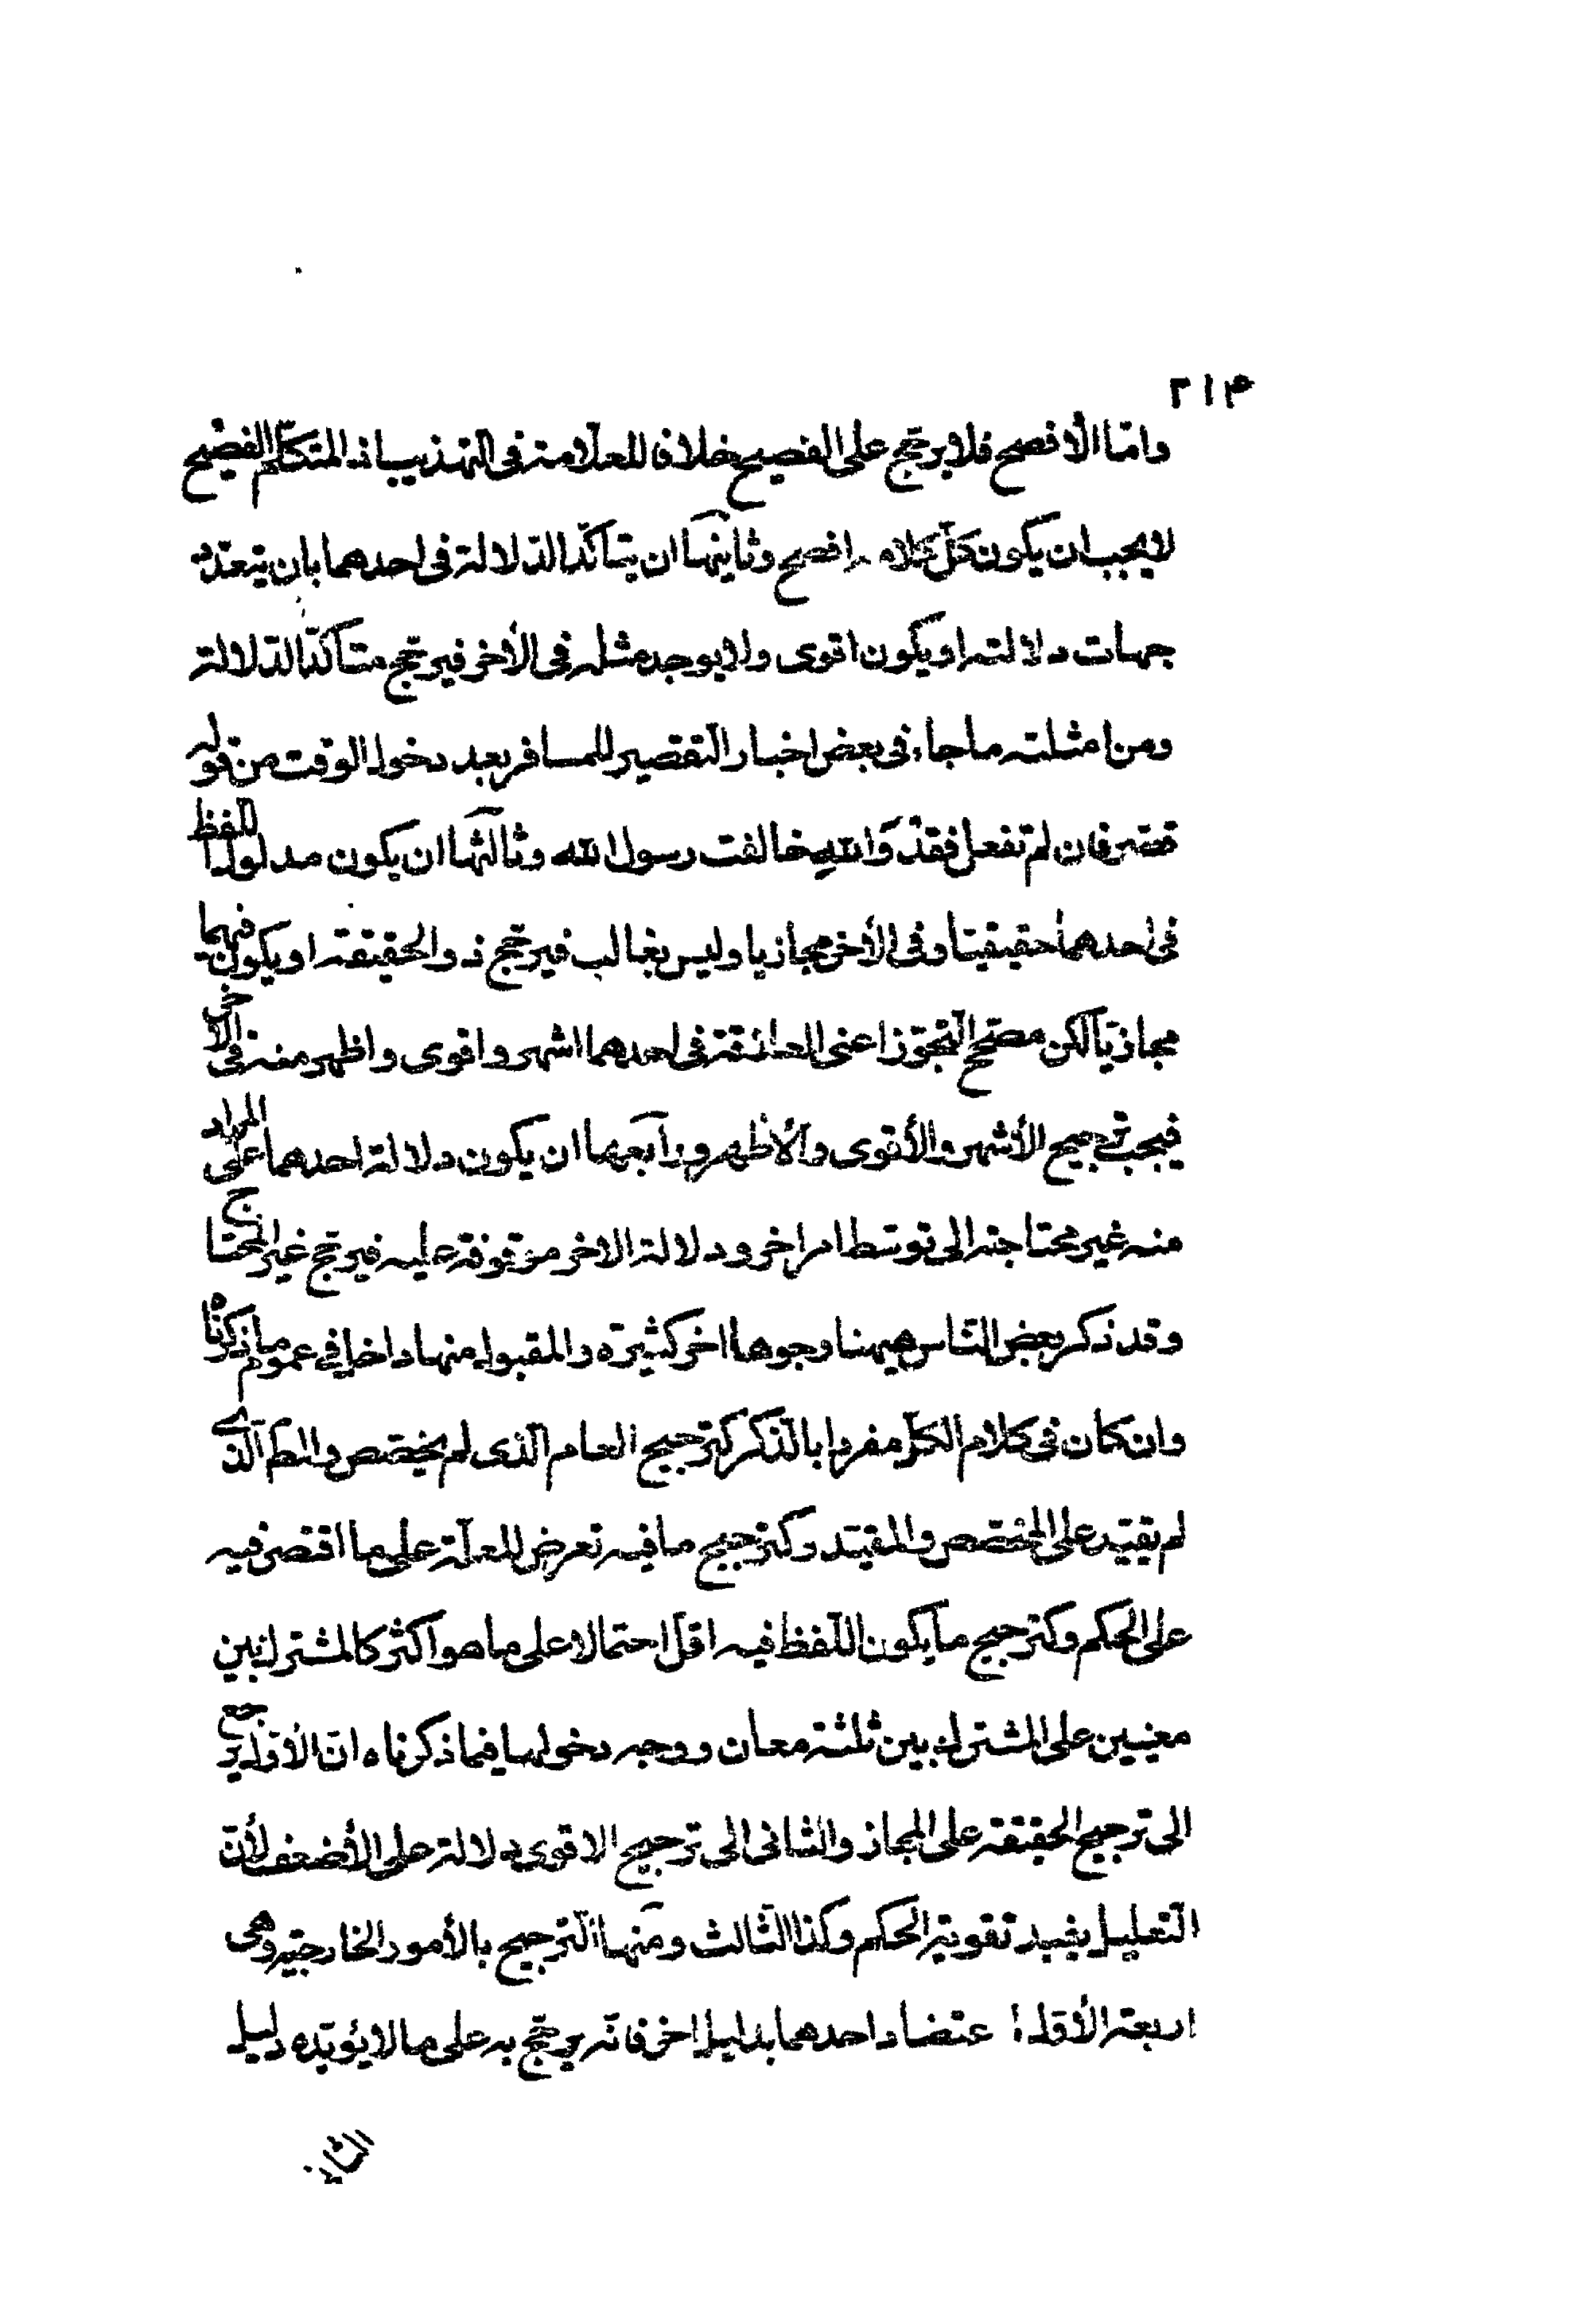 ٢١٣
وامّا الأفصح فلا يرجّح على الفصيح خلافا للعلّامة في التهذيب اذ المتكلّم الفصيح
لا يجب ان يكون كلّ كلامه افصح وثانيها ان يتأكّد الدّلالة في احدهما بان يتعدّد
جهات دلالته او يكون اقوى ولا يوجد مثله في الأخر فيرجّح متأكّد الدّلالة
ومن امثلته ما جاء في بعض اخبار التقصير للمسافر بعد دخول الوقت من قوله
قصّر فان لم تفعل فقد وَاللهِ خالفت رسول الله وثالثها ان يكون مدلول اللّفظ
في احدهما حقيقيّا وفي الأخر مجازيا وليس بغالب فيرجّح ذو الحقيقة او يكون فيهما
مجازيّا لكن مصحّح التجوّز اعنى العلاقة في احدهما اشهر واقوى واظهر منه في الأخر
فيجب ترجيح الأشهر والأقوى والأظهر ورابعها ان يكون دلالة احدهما على المراد
منه غير محتاجة الى توسّط امر اخر ودلالة الاخر موقوفة عليه فيرجّح غير المحتاج
وقد ذكر بعض النّاس هيهنا وجوها اخر كثيرة والمقبول منها داخل في عموم ما ذكرناه
وان كان في كلام الكلّ مفردا بالذّكر كترجيح العام الّذى لم يخصّص والمط الّذى
لم يقيّد على المخصّص والمقيّد وكترجيح ما فيه تعرض للعلّة على ما اقتصر فيه
على الحكم وكترجيح ما يكون اللّفظ فيه اقلّ احتمالا على ما هو اكثر كالمشترك بين
معنيين على المشترك بين ثلثة معان ووجه دخولها فيما ذكرناه انّ الأوّل يرجع
الى ترجيح الحقيقة على المجاز والثانى الى ترجيح الاقوى دلالة على الأضعف لأنّ
التّعليل يفيد تقوية الحكم وكذا الثّالث ومنها التّرجيح بالأمور الخارجيّة وهى
اربعة الأوّل اعتضاد احدهما بدليل اخر فانّه يرجّح به على ما لا يؤيّده دليل